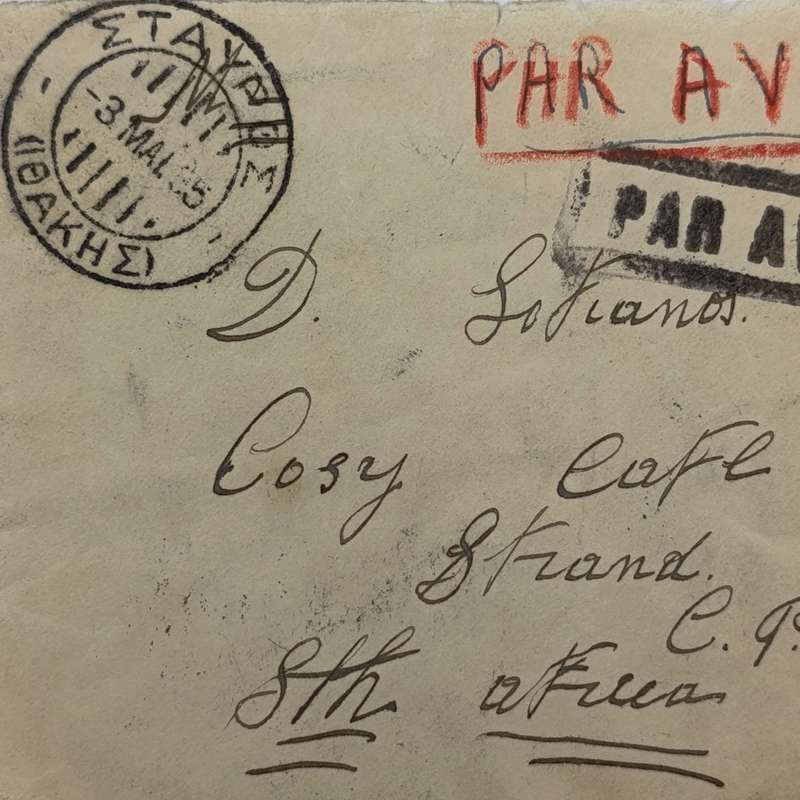 ΣΤΑΥΡΟΣ
-3.ΜΑΙ. 35
(ΙΘΑΚΗΣ)
PAR AV
PAR A
D. Sotianos.
Cosy Cafe
Strand.
C. P.
Sth africa